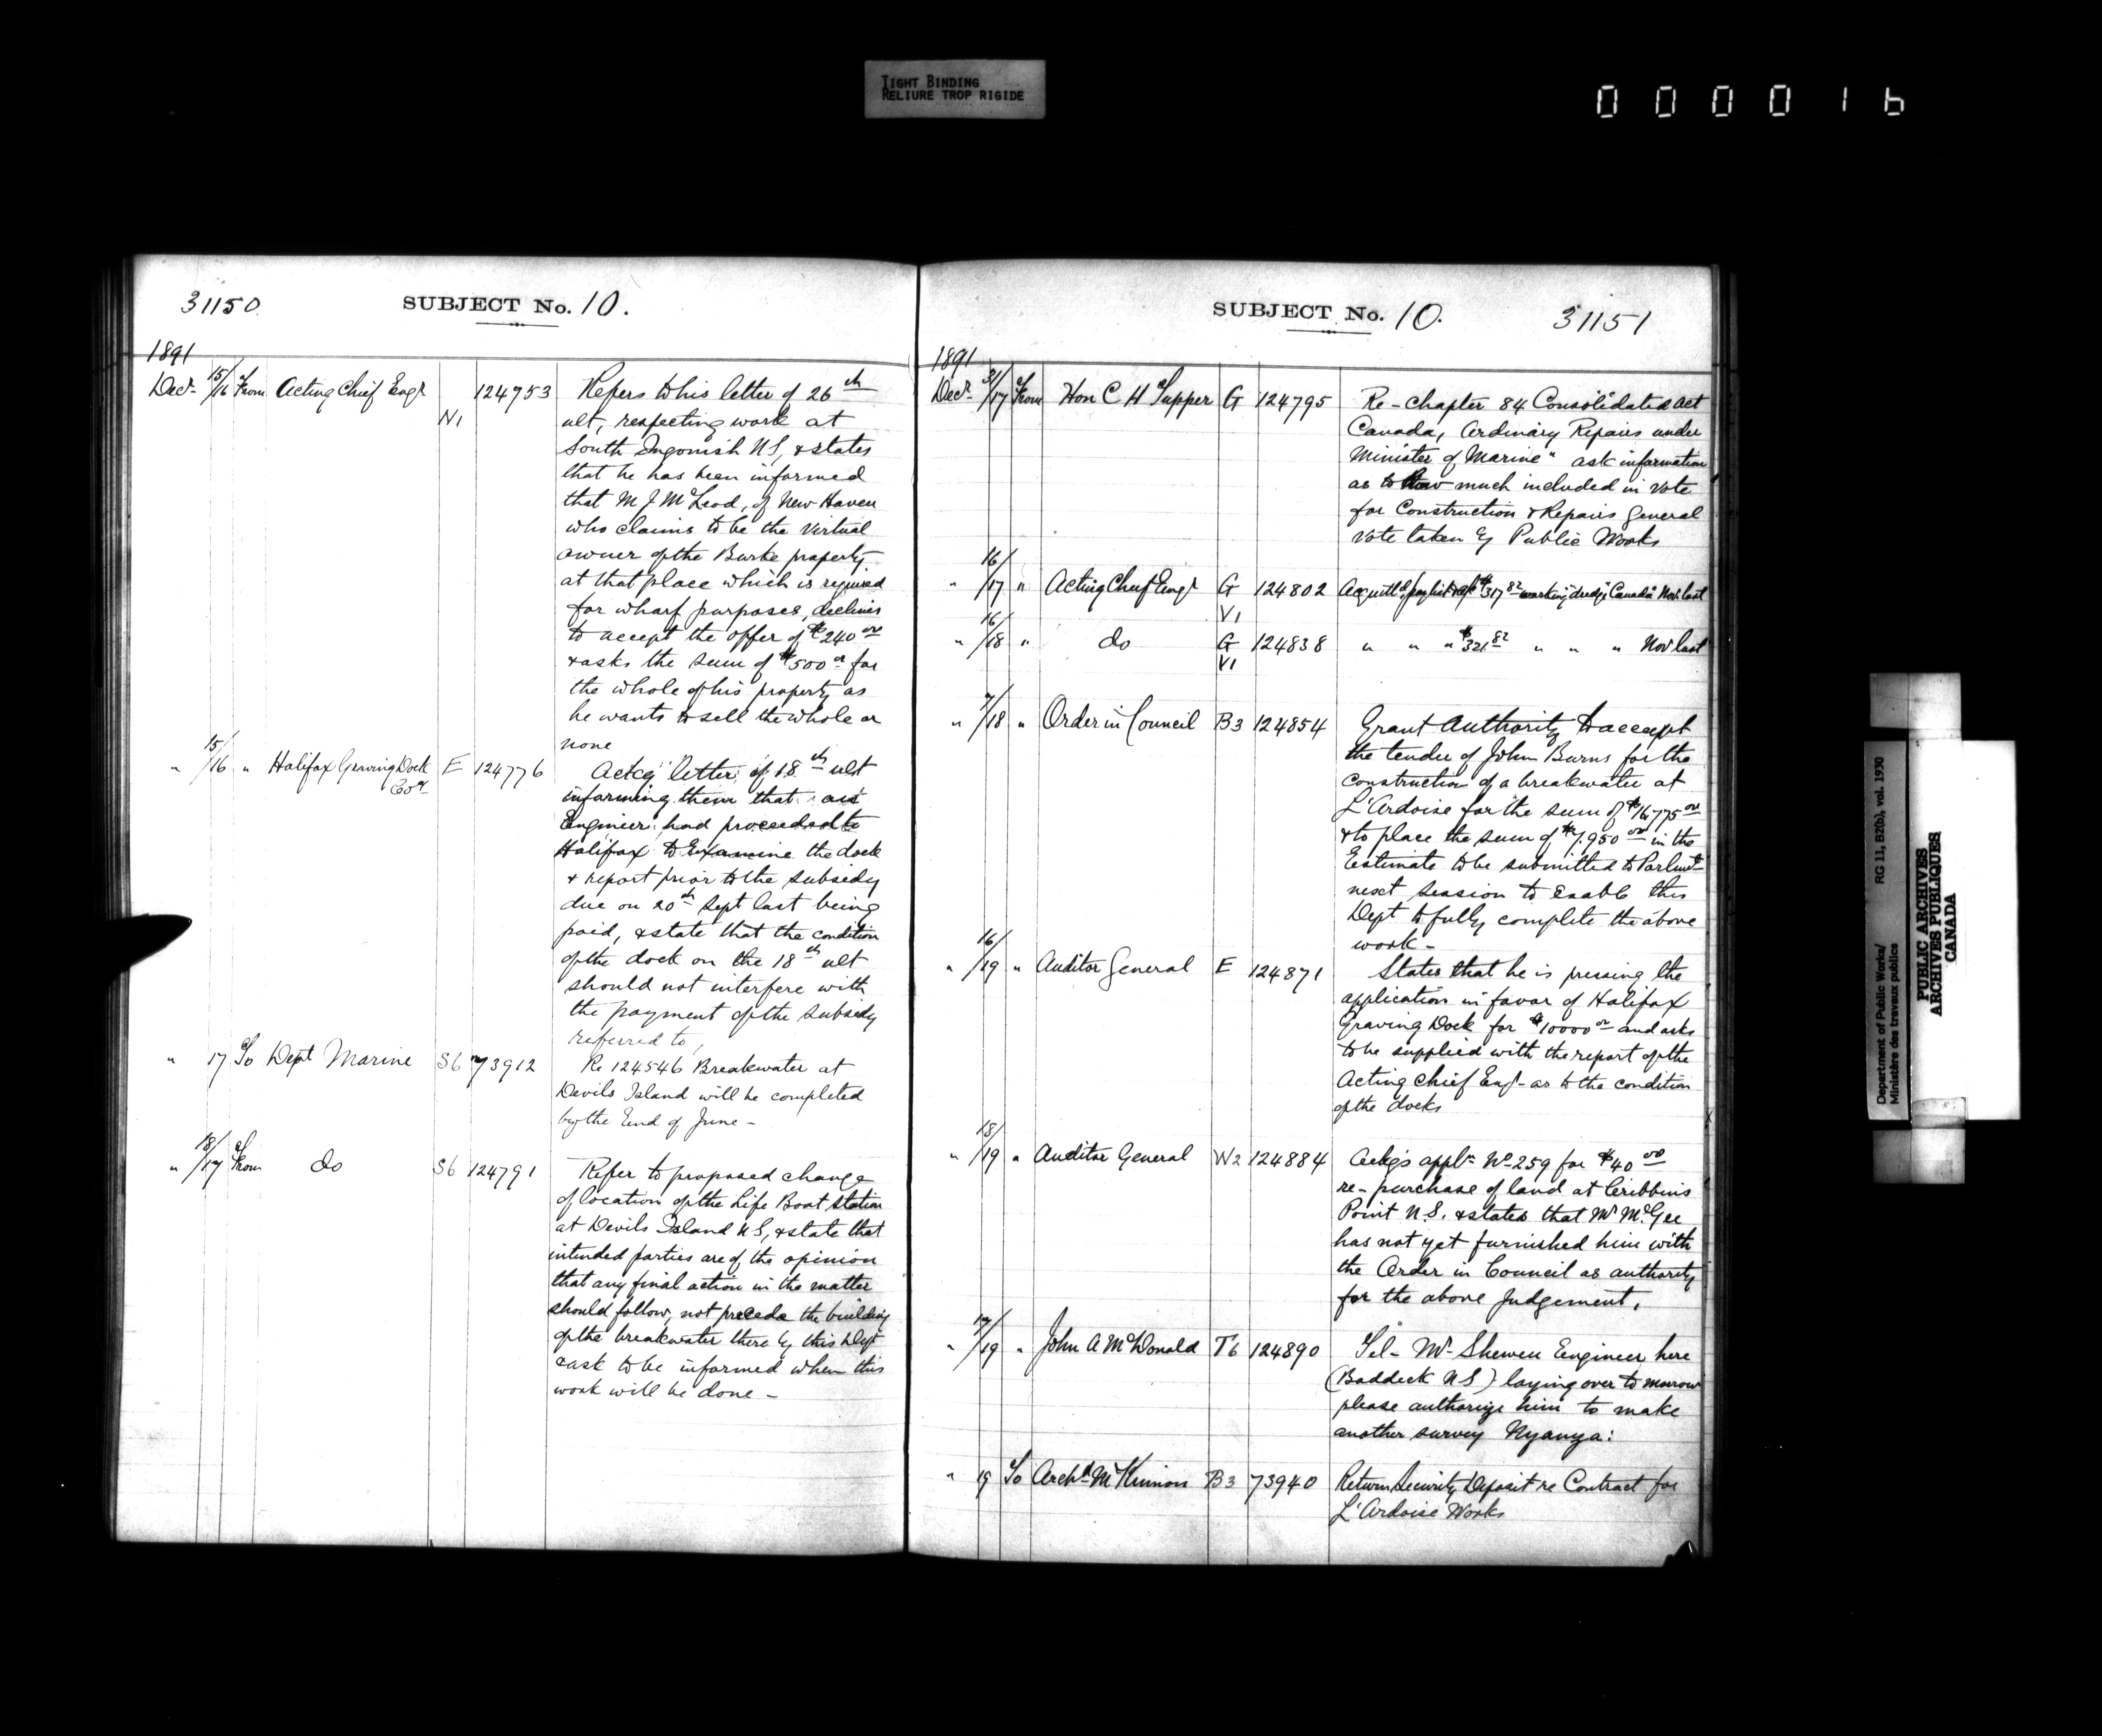 TIGHT BINDING
RELIURE TROP RIGIDE
000016
31150
SUBJECT No. 10.
1891
Decr 15/16 From Acting Chief Engr N1 124753 Refers to his letter of 26th
ult, respecting work at
South Ingonish NS, & states
that he has been informed
that M J McLeod, of New Haven
who claims to be the virtual
owner of the Burke property
at that place which is required
for wharf purposes, declines
to accept the offer of $240 00
& asks the sum of $500 00 for
the whole of his property as
he wants to sell the whole or
none
" 15/16 " Halifax Graving Dock Coy E 124776 Ackg letter of 18th ult
informing them that an
Engineer had proceeded to
Halifax to Examine the dock
& report prior to the subsidy
due on 20th Sept last being
paid, & state that the condition
of the dock on the 18th ult
should not interfere with
the payment of the subsidy
referred to,
" 17 To Dept Marine S6 73912 Re 124546 Breakwater at
Devils Island will be completed
by the End of June -
" 18/17 From do S6 124791 Refer to proposed change
of location of the Life Boat Station
at Devils Island NS, & state that
intended parties are of the opinion
that any final action in the matter
should follow, not precede the building
of the breakwater there by this Dept
& ask to be informed when this
work will be done -
SUBJECT No. 10.
31151
1891
Decr /17 From Hon C H Tupper G 124795 Re - Chapter 84 Consolidated Act
Canada, Ordinary Repairs under
Minister of Marine" ask information
as to how much included in vote
for Construction & Repairs General
vote taken by Public Works
" 16/17 " Acting Chief Engr G V1 124802 $317 82 working dredge "Canada" Nov last
" 16/18 " do G V1 124838 " " " $321 82 " " " Nov last
" 7/18 " Order in Council B3 124854 Grant Authority to accept
the tender of John Burns for the
construction of a breakwater at
L'Ardoise for the sum of $14775 00
& to place the sum of $7.950 00 in the
Estimate to be submitted to Parlmt
next session to enable this
Dept to fully complete the above
work -
" 16/19 " Auditor General E 124871 States that he is pressing the
application in favor of Halifax
Graving Dock for $10000 00 and asks
to be supplied with the report of the
Acting Chief Engr as to the condition
of the docks
" 18/19 " Auditor General W2 124884 Ackgs appln No 259 for $40 00
re - purchase of land at Cribbins
Point N.S. & states that Mr McGee
has not yet furnished him with
the Order in Council as authority
for the above Judgement.
" 17/19 " John A McDonald T6 124890 Tel - Mr Shewen Engineer here
(Baddeck NS) laying over to morrow
please authorize him to make
another survey Nyanya:
" 19 To Archd McKinnon B3 73940 Return Security Deposit re Contract for
L'Ardoise Works
Department of Public Works/ RG 11, B2(b), vol. 1930
Ministère des travaux publics
PUBLIC ARCHIVES
ARCHIVES PUBLIQUES
CANADA